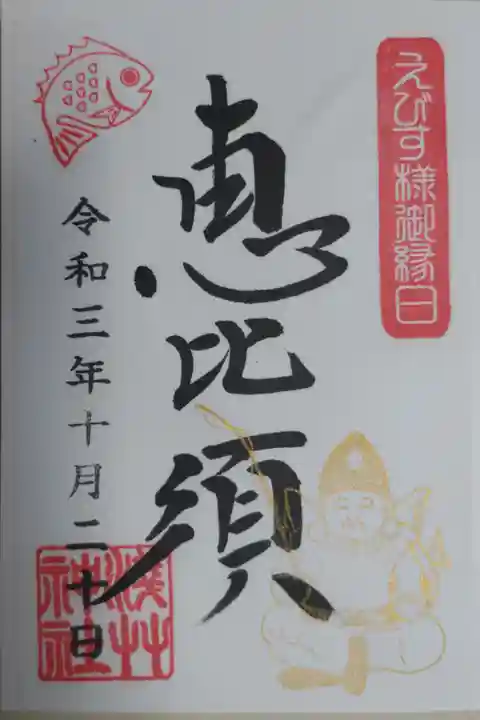 えびす様御縁日
恵比須
令和三年十月二十日
浅草神社